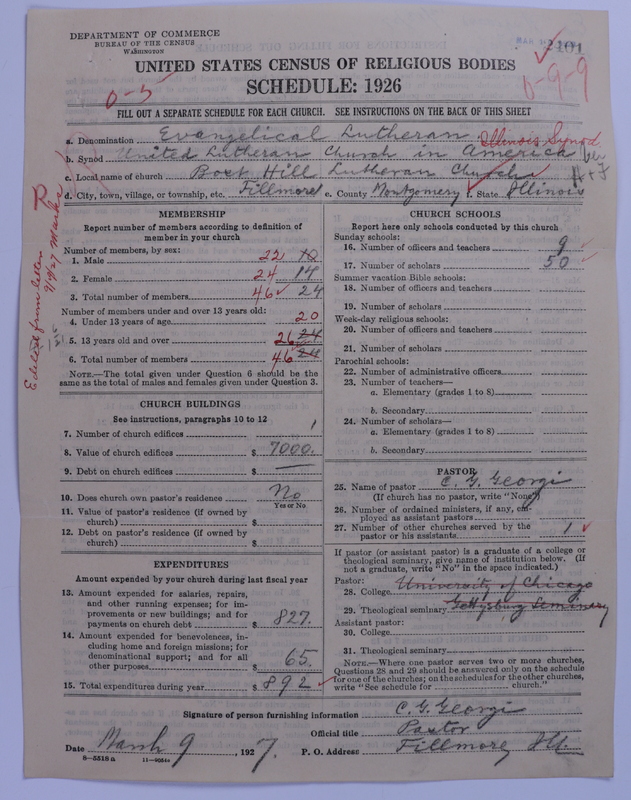 DEPARTMENT OF COMMERCE
BUREAU OF THE CENSUS
WASHINGTON
2401
UNITED STATES CENSUS OF RELIGIOUS BODIES
SCHEDULE: 1926
0-5
0-9-9
FILL OUT A SEPARATE SCHEDULE FOR EACH CHURCH. SEE INSTRUCTIONS ON THE BACK OF THIS SHEET
a. Denomination Evangelical Lutheran Illinois Synod
b. Synod United Lutheran Church in America
c. Local name of church Bost Hill Lutheran Church
d. City, town, village, or township, etc. Fillmore e. County Montgomery f. State Illinois
MEMBERSHIP
Report number of members according to definition of
member in your church
Number of members, by sex:
1. Male 22 10
2. Female 24 14
3. Total number of members 46 24
Number of members under and over 13 years old:
4. Under 13 years of age 20
5. 13 years old and over 26 24
6. Total number of members 46 24
NOTE.—The total given under Question 6 should be the
same as the total of males and females given under Question 3.
CHURCH BUILDINGS
See instructions, paragraphs 10 to 12
7. Number of church edifices 1
8. Value of church edifices $ 7000.
9. Debt on church edifices $ —
10. Does church own pastor's residence No
Yes or No
11. Value of pastor's residence (if owned by
church) $
12. Debt on pastor's residence (if owned by
church) $
EXPENDITURES
Amount expended by your church during last fiscal year
13. Amount expended for salaries, repairs,
and other running expenses; for im-
provements or new buildings; and for
payments on church debt $ 827.
14. Amount expended for benevolences, in-
cluding home and foreign missions; for
denominational support; and for all
other purposes $ 65.
15. Total expenditures during year $ 892
CHURCH SCHOOLS
Report here only schools conducted by this church
Sunday schools:
16. Number of officers and teachers 9
17. Number of scholars 50
Summer vacation Bible schools:
18. Number of officers and teachers
19. Number of scholars
Week-day religious schools:
20. Number of officers and teachers
21. Number of scholars
Parochial schools:
22. Number of administrative officers
23. Number of teachers—
a. Elementary (grades 1 to 8)
b. Secondary
24. Number of scholars—
a. Elementary (grades 1 to 8)
b. Secondary
PASTOR
25. Name of pastor C. G. Georgi
(If church has no pastor, write "None")
26. Number of ordained ministers, if any, em-
ployed as assistant pastors
27. Number of other churches served by the
pastor or his assistants 1
If pastor (or assistant pastor) is a graduate of a college or
theological seminary, give name of institution below. (If
not a graduate, write "No" in the space indicated.)
Pastor:
28. College University of Chicago
29. Theological seminary Gettysburg Seminary
Assistant pastor:
30. College
31. Theological seminary
NOTE.—Where one pastor serves two or more churches,
Questions 28 and 29 should be answered only on the schedule
for one of the churches; on the schedules for the other churches,
write "See schedule for church."
Signature of person furnishing information C. G. Georgi
Official title Pastor
Date March 9, 1927. P. O. Address Fillmore Ill.
8—5518a 11—9054a